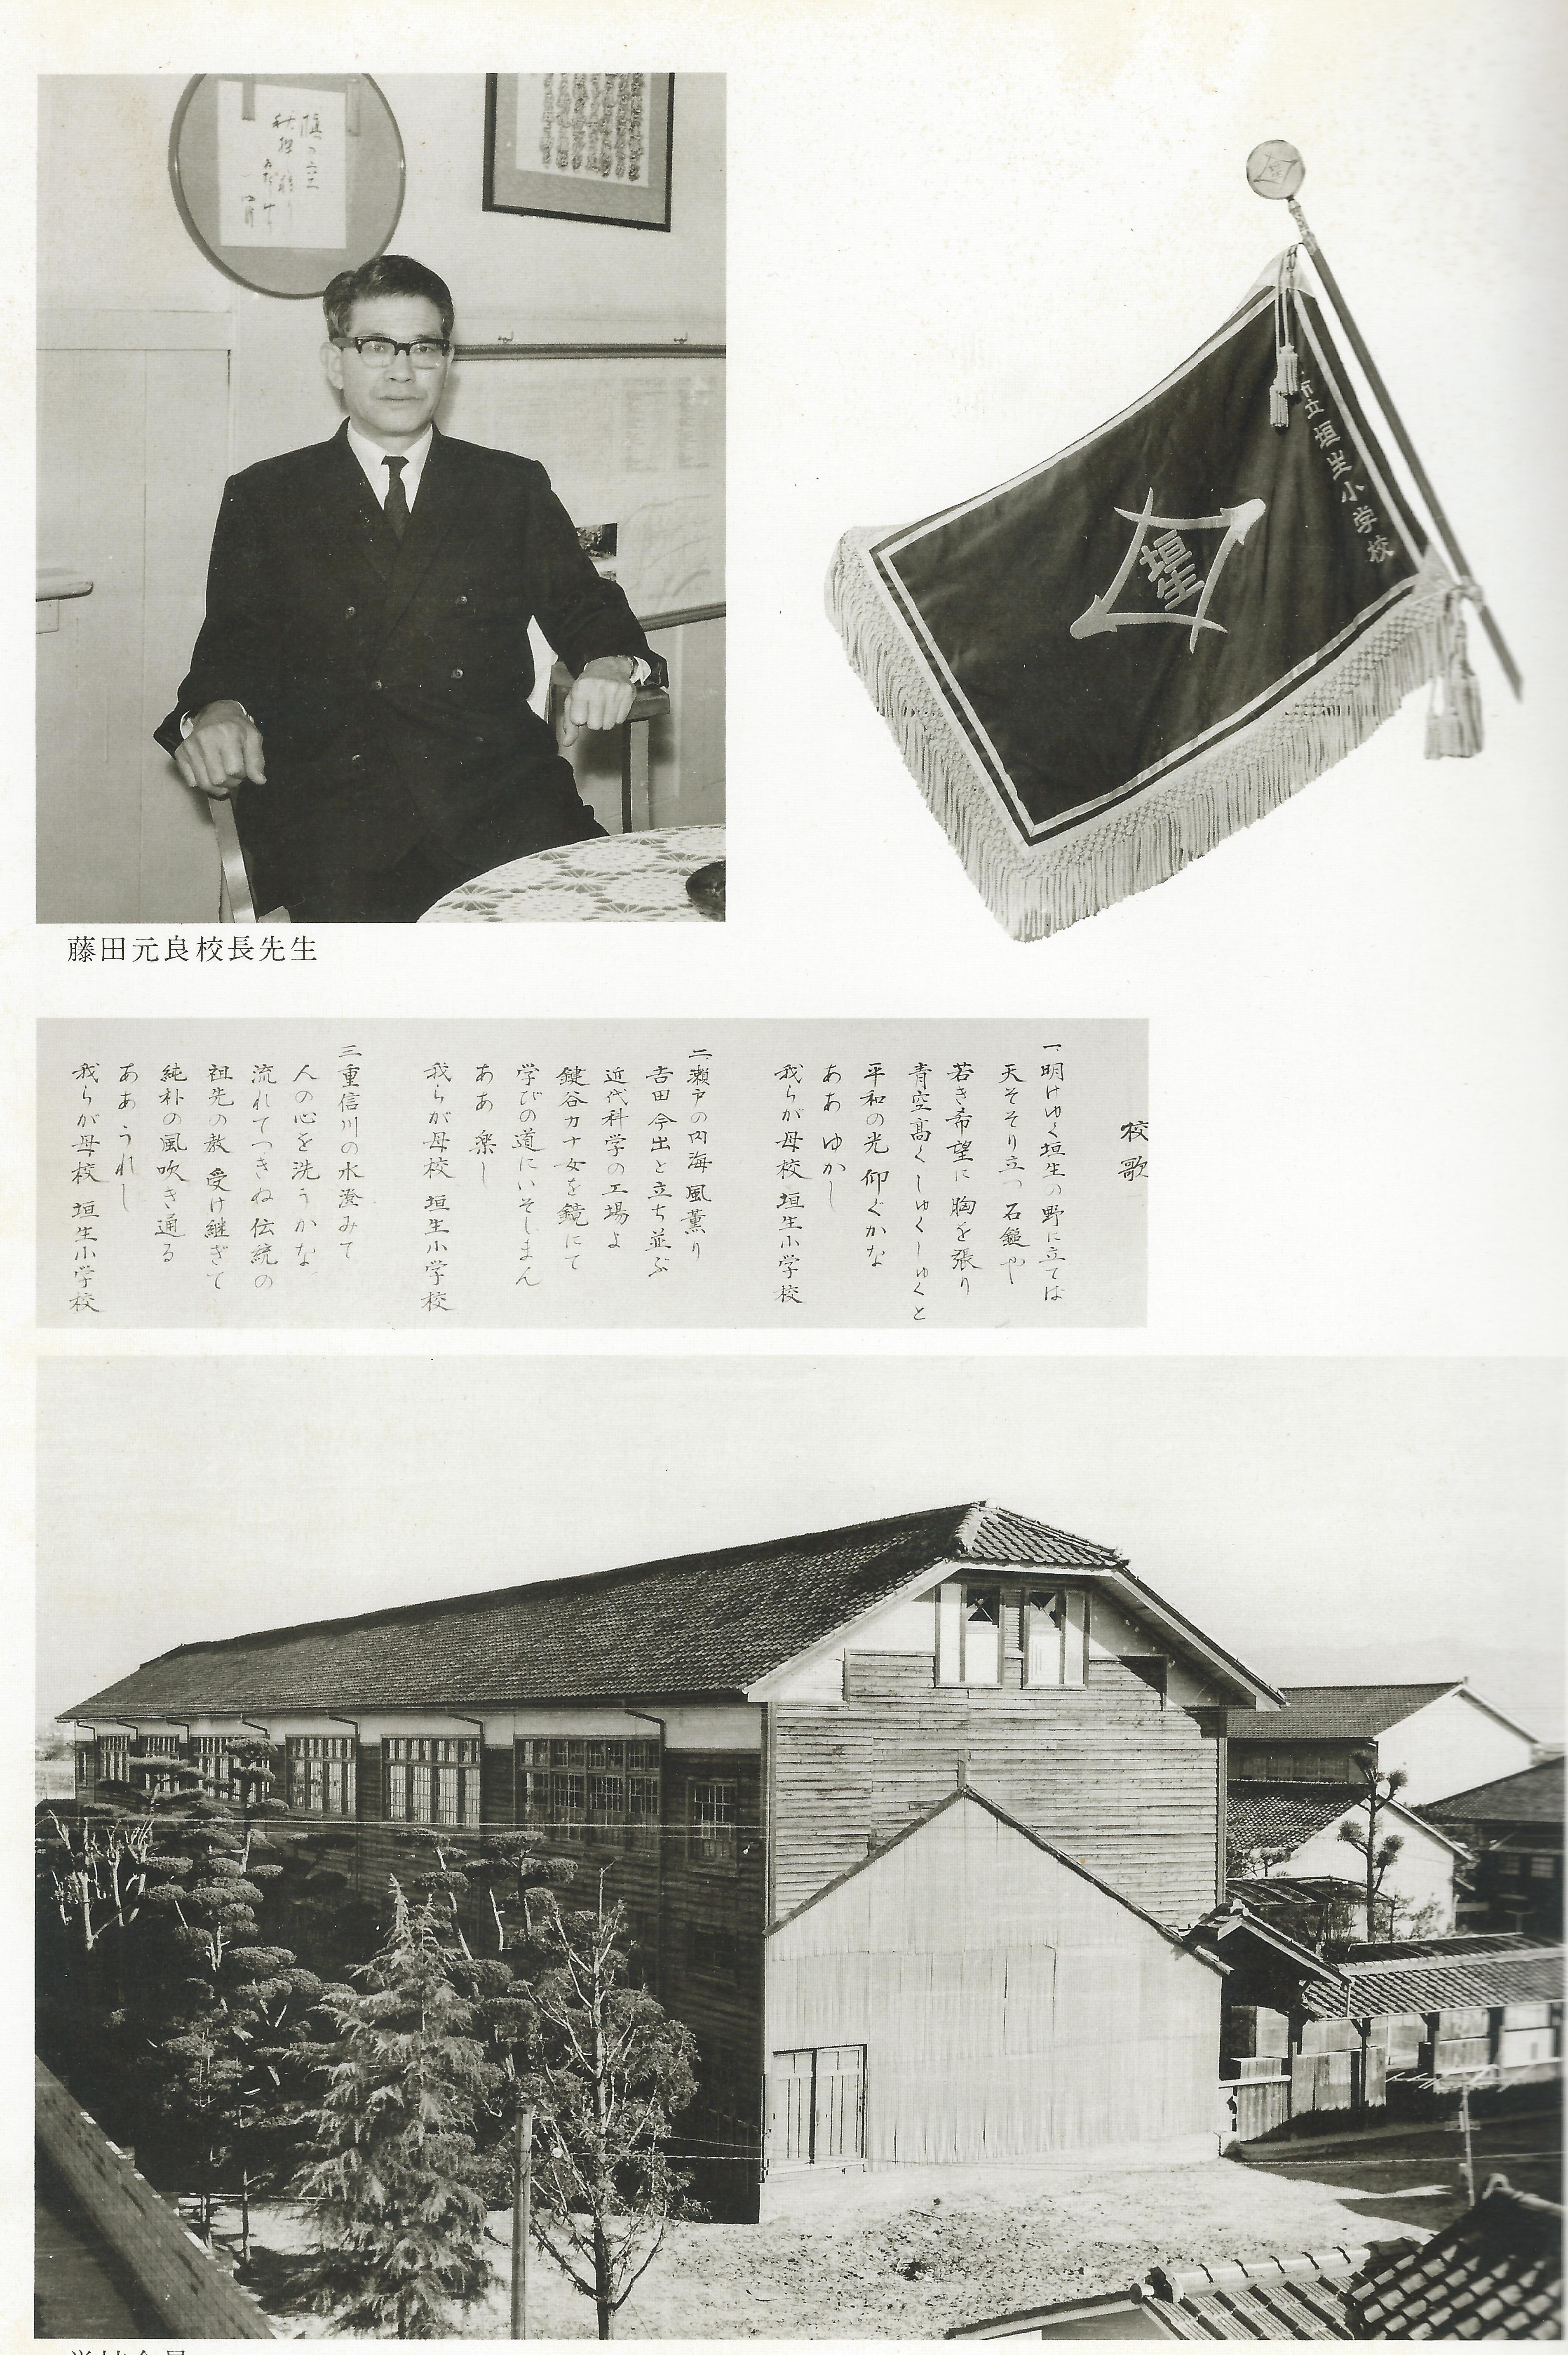 市立垣生小学校
垣生
藤田元良校長先生
校歌
一、明けゆく垣生の野に立てば
天そそり立つ 石鎚や
若き希望に 胸を張り
青空高く しゅくしゅくと
平和の光 仰ぐかな
ああ ゆかし
我らが母校 垣生小学校
二、瀬戸の内海 風薫り
吉田 今出と立ち並ぶ
近代科学の工場よ
鍵谷カナ女を鏡にて
学びの道にいそしまん
ああ 楽し
我らが母校 垣生小学校
三、重信川の水澄みて
人の心を洗うかな
流れてつきぬ 伝統の
祖先の教 受け継ぎて
純朴の風吹き通る
ああ うれし
我らが母校 垣生小学校